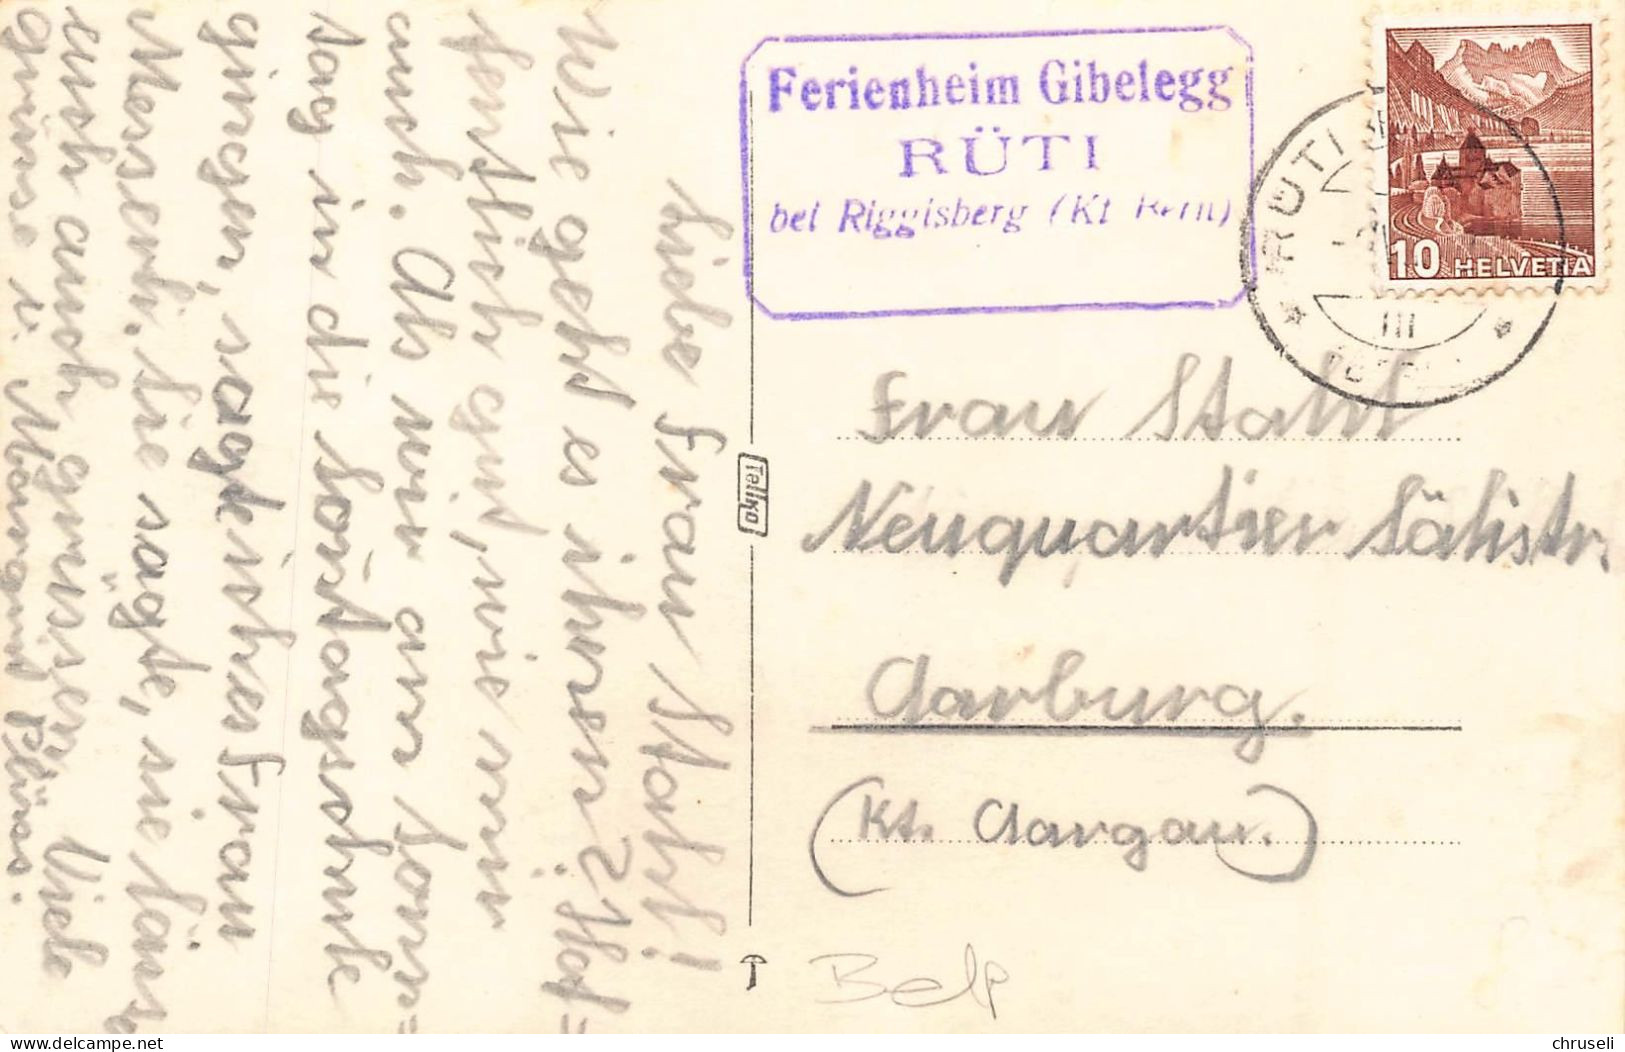 Ferienheim Gibelegg
RÜTI
bei Riggisberg (Kt Bern)
RÜTI
10 HELVETIA
Liebe Frau Stahl!
Wie geht es ihnen? Hof=
fentlich gut, wie mir
auch. Als wir am Sonn=
tag in die Sontagschule
gingen, sagte
Frau
Merserli. Sie sagte, sie
euch auch grüssen. Viele
grüsse v. Plüss.
Tellko
Frau Stahl
Neuquartier Sälistr.
Aarburg.
(Kt. Aargau.)
Belp
chruseli